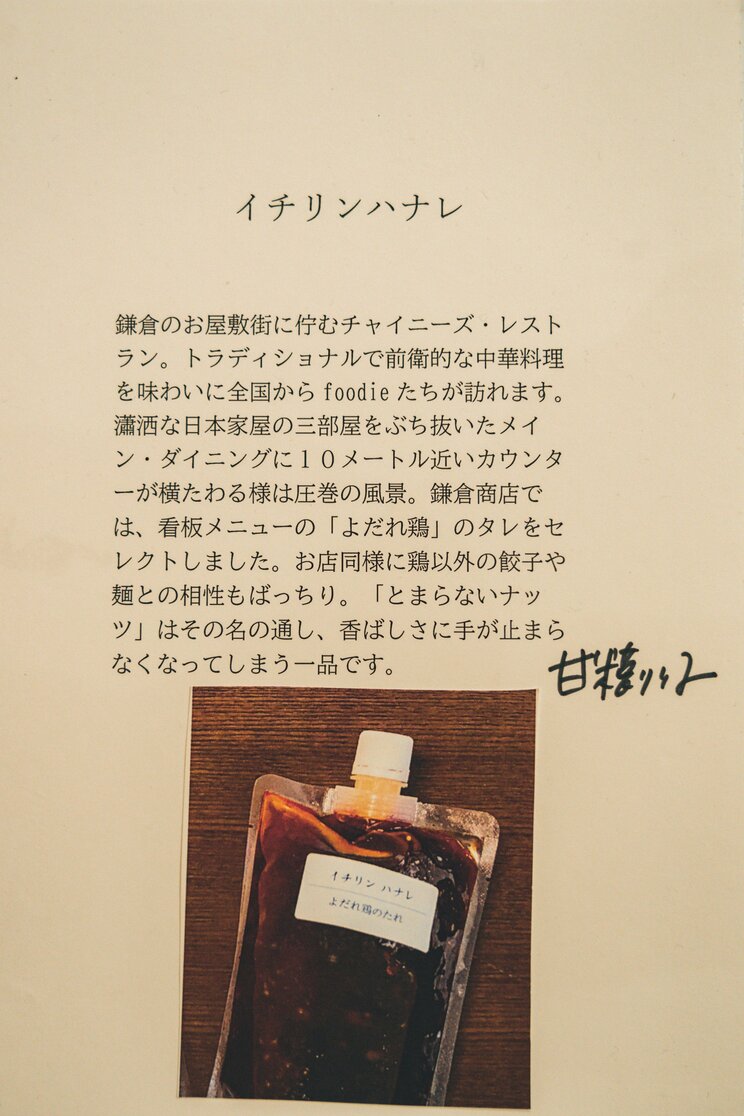 イチリンハナレ
鎌倉のお屋敷街に佇むチャイニーズ・レスト
ラン。トラディショナルで前衛的な中華料理
を味わいに全国からfoodieたちが訪れます。
瀟洒な日本家屋の三部屋をぶち抜いたメイ
ン・ダイニングに１０メートル近いカウンタ
ーが横たわる様は圧巻の風景。鎌倉商店で
は、看板メニューの「よだれ鶏」のタレをセ
レクトしました。お店同様に鶏以外の餃子や
麺との相性もばっちり。「とまらないナッ
ツ」はその名の通し、香ばしさに手が止まら
なくなってしまう一品です。
イチリン ハナレ
よだれ鶏のたれ